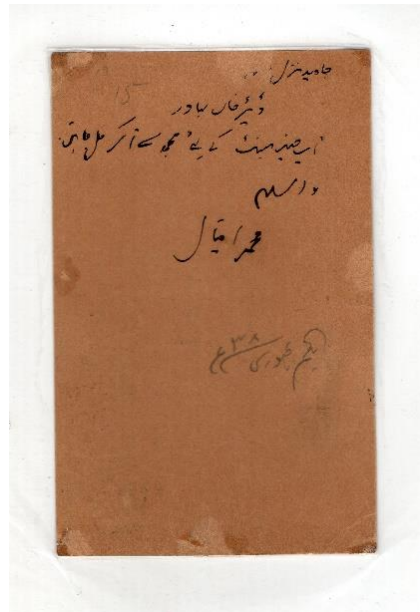 جاوید منزل
15
ڈیر خان بہادر
آپ چند منٹ کے لیے مجھ سے آ کر مل جائیں
والسلام
محمد اقبال
یکم جنوری ۳۸ء